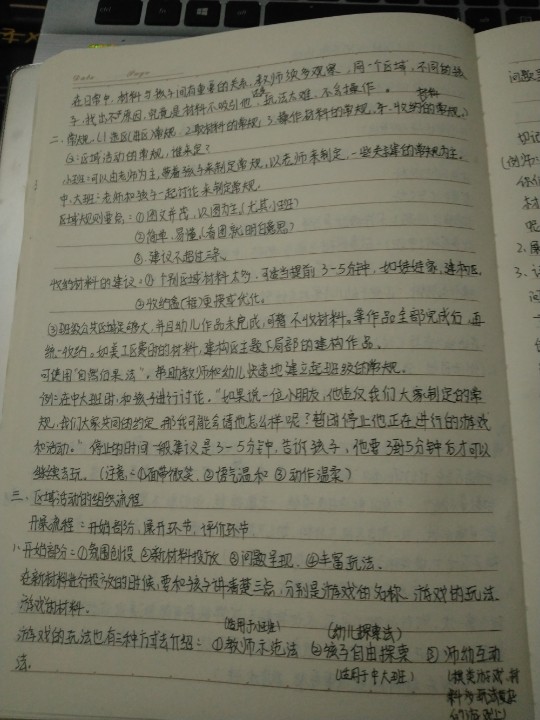 Date Page
在日常中,材料与孩子间有重要的关系,教师须多观察,同一个区域,不同的孩
子,找出不同原因,究竟是材料不吸引他,还是玩法太难,不会操作。
二、常规。(1.进区(选区)常规 2.取材料的常规 3.操作材料的常规,4.收材料的常规。)
Q:区域活动的常规,谁来定?
小班:可以由老师为主,带着孩子来制定常规,以老师来制定,一些关键的常规为主。
中、大班:老师和孩子一起讨论来制定常规。
区域规则要点:①图文并茂,以图为主(尤其小班)
②简单,易懂(看图就明白意思)
③建议不超过三条。
收纳材料的建议:①个别区域材料太多,可适当提前3-5分钟,如娃娃家,建构区。
②收纳盒(框)更换或优化。
③班级公共区域足够大,并且幼儿作品未完成,可暂不收材料。等作品全部完成后,再
统一收纳。如美工区费时的材料,建构区主题下局部的建构作品。
可使用"自然后果法",帮助教师和幼儿快速地建立起班级的常规。
例:在中大班时,和孩子进行讨论。"如果说一位小朋友,他违反我们大家制定的常
规,我们大家共同的约定,那我可能会请他怎么样呢?暂时停止他正在进行的游戏
和活动。"停止的时间一般建议是3-5分钟,告诉孩子,他要3到5分钟后才可以
继续去玩。(注意:①面带微笑 ②语气温和 ③动作温柔)
三、区域活动的组织流程
开展流程:开始部分,展开环节,评价环节
1、开始部分:①氛围创设 ②新材料投放 ③问题呈现 ④丰富玩法。
在新材料进行投放的时候,要和孩子讲清楚三点,分别是游戏的名称、游戏的玩法、
游戏的材料。
(适用于小班) (幼儿探索法)
游戏的玩法也有三种方式去介绍:①教师示范法 ②孩子自由探索 ③师幼互动
法。 (适用于中大班) (棋类游戏,材
料与玩法